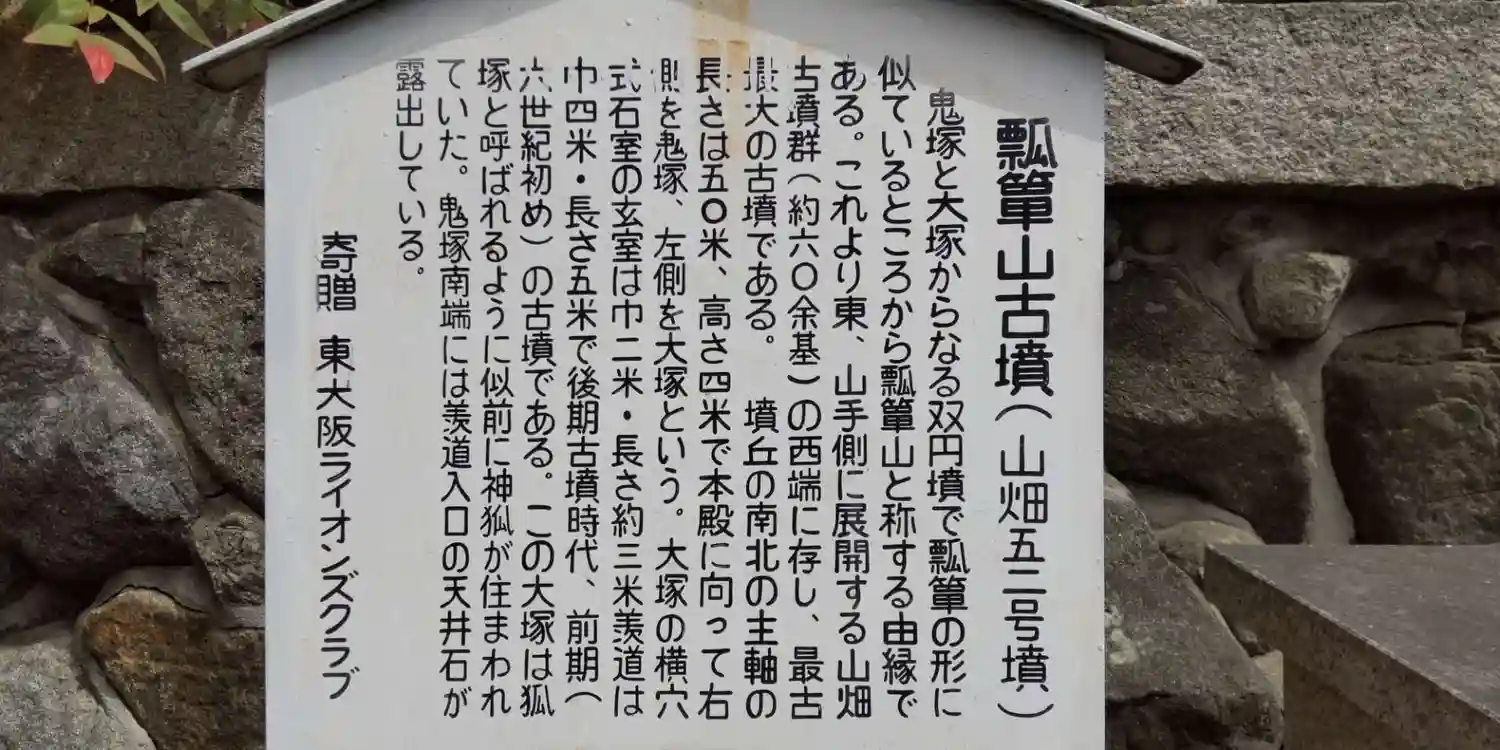 瓢箪山古墳（山畑五二号墳）
鬼塚と大塚からなる双円墳で瓢箪の形に
似ているところから瓢箪山と称する由縁で
ある。これより東、山手側に展開する山畑
古墳群（約六〇余基）の西端に存し、最古
最大の古墳である。　墳丘の南北の主軸の
長さは五〇米、高さ四米で本殿に向って右
側を鬼塚、左側を大塚という。大塚の横穴
式石室の玄室は巾二米・長さ約三米羨道は
巾四米・長さ五米で後期古墳時代、前期（
六世紀初め）の古墳である。この大塚は狐
塚と呼ばれるように似前に神狐が住まわれ
ていた。鬼塚南端には羨道入口の天井石が
露出している。
寄贈　東大阪ライオンズクラブ